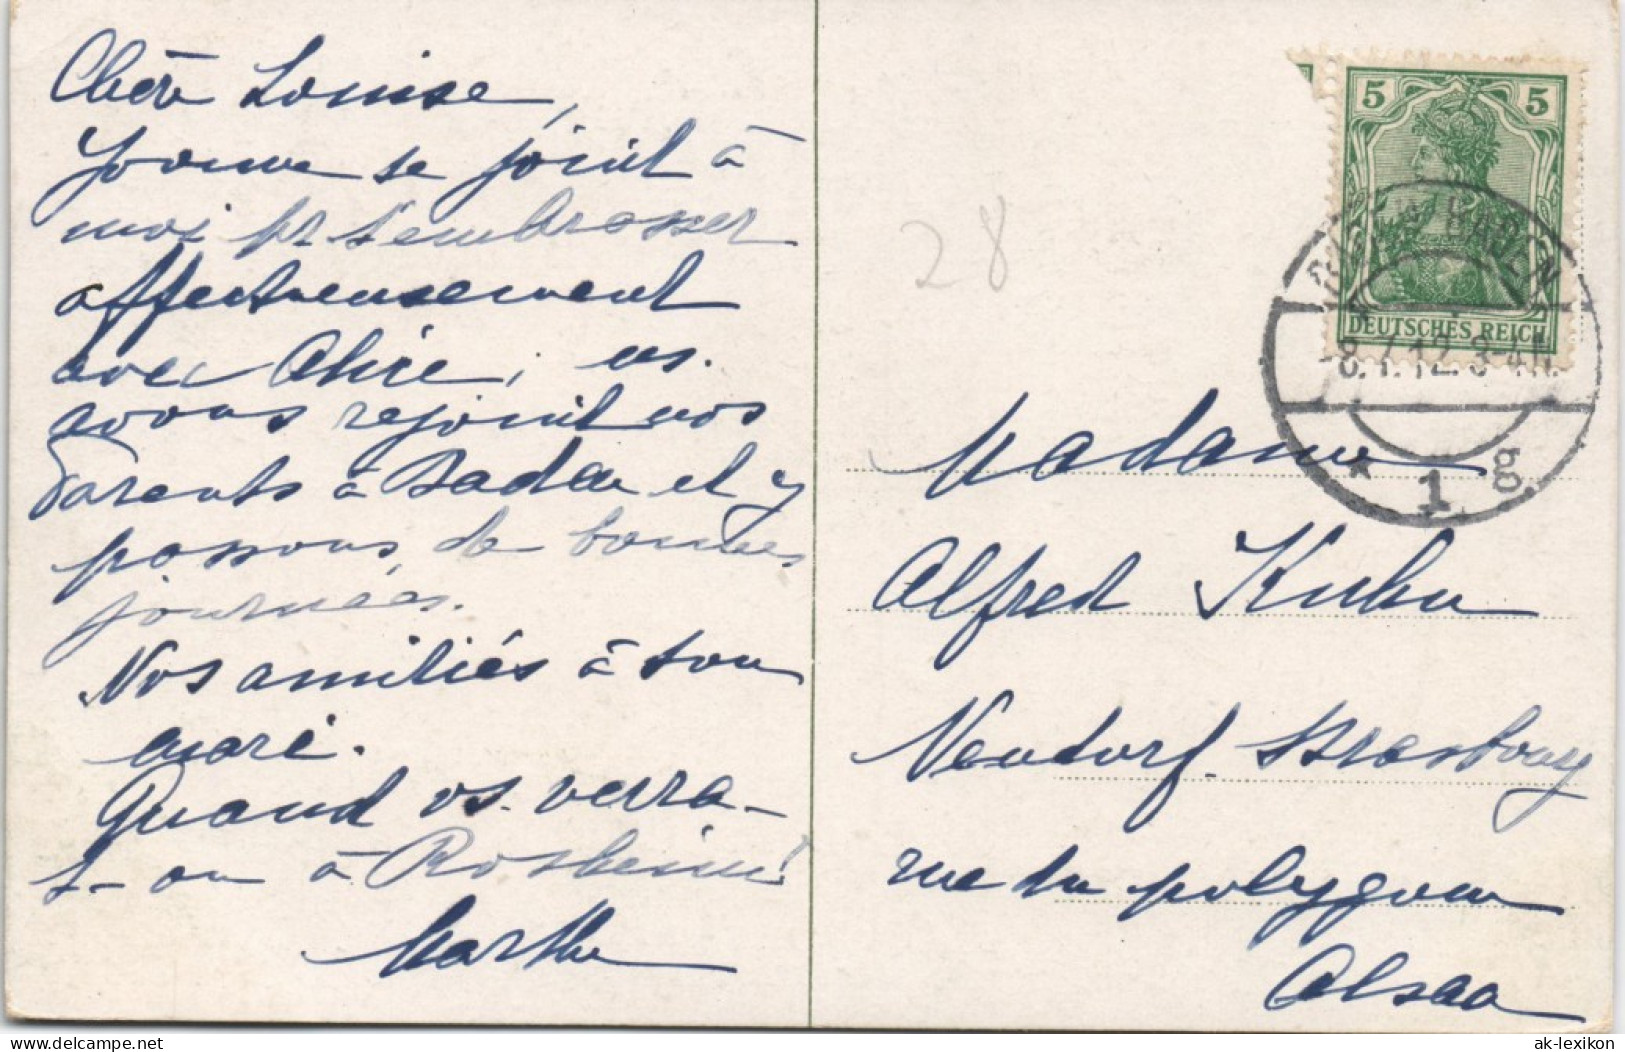 Chère Louise,
Yvonne se joint à
moi pr t'embrasser
affectueusement
avec Alice, ns.
avons rejoint nos
Parents à Baden et y
passons de bonnes
journées.
Nos amitiés à ton
mari.
Quand vs. verra-
t-on à Rosheim?
Marthe
28
5 5
DEUTSCHES REICH
BADEN
* 1 g.
Madame
Alfred Kuhn
Neudorf Strasbourg
rue du polygone
Alsace
delcampe.net
ak-lexikon